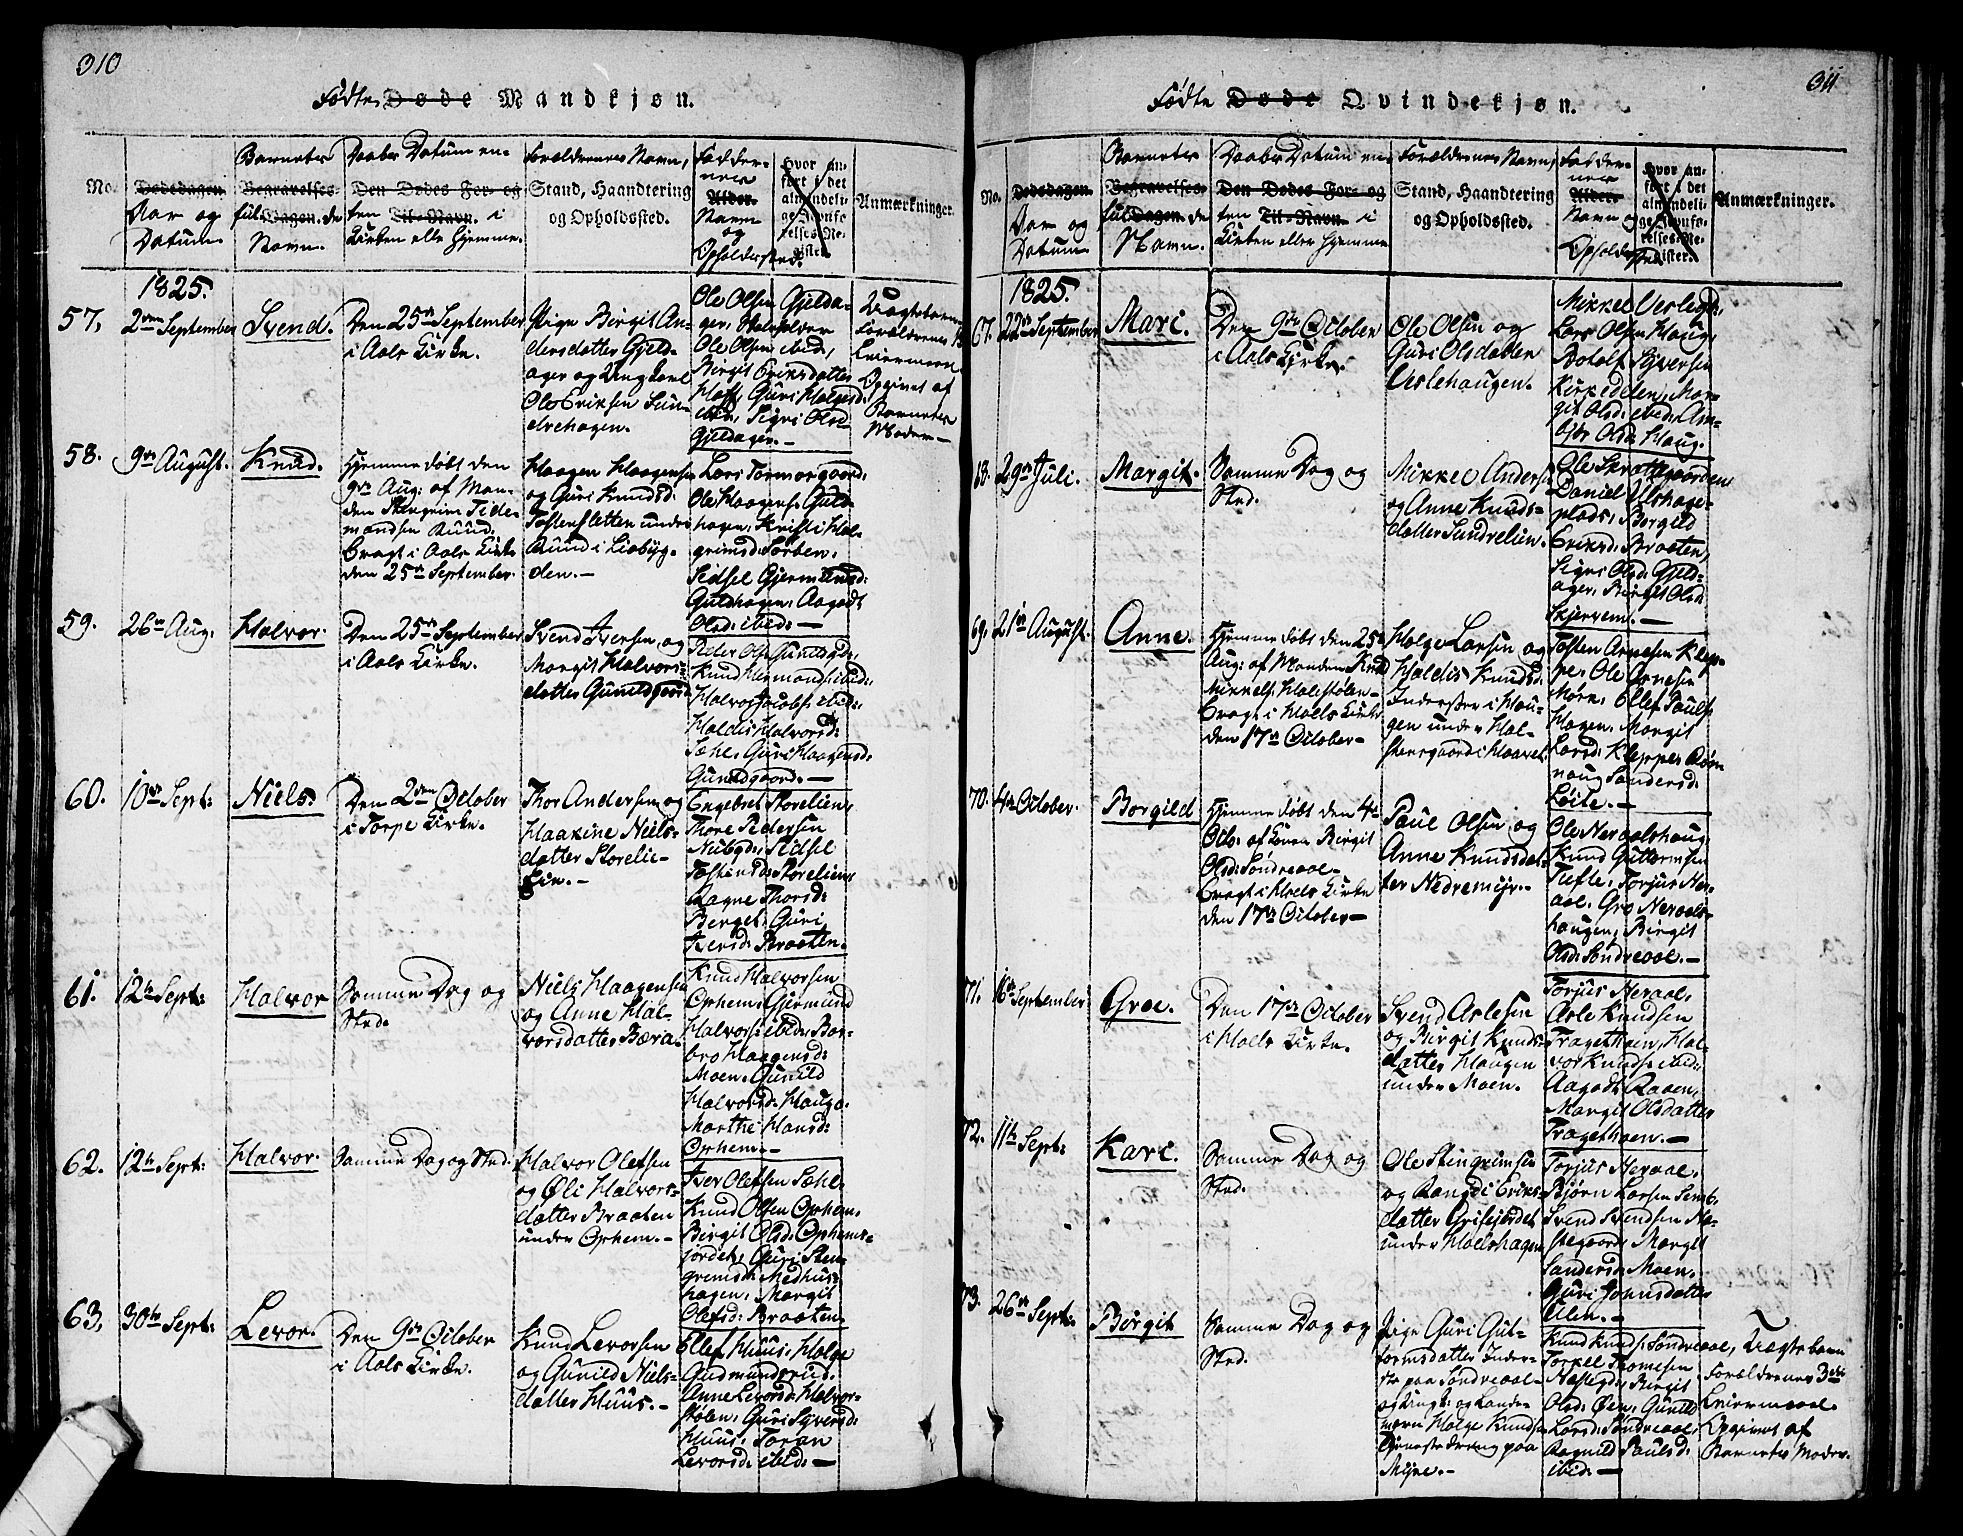 310
Födte Döde Mandkjøn.
No.
Dødsdagen
Aar og
Datum
Barnets
Begravelses-
ful- Dagen. de
Navn.
Daabs Datum en-
Den Dødes For- og
ten Til-Navn. i
Kirken elle Hjemme.
Forældrenes Navn,
Stand, Haandtering
og Opholdssted.
Fadder-
nes
Alder
Navn
og
Opholdssted.
Hvor an-
ført i det
almindeli-
ge Jevnfø-
relses-Re-
gister.
Anmærkninger.
1825.
57.
2den September
Svend.
Den 25de September
i Aals Kirke.
Pige Birgit An-
dersdatter Gjeld-
ager og Ungkarl
Ole Eriksen Sun-
drehagen.
Ole Olsen Gjelda-
ger,
Ole Olsen ibid,
Birgit Eriksdatter
Hoff, Guri Helgesd:
ibid, Sigri Olsd:
Gjeldager.—
Uægtebarn
Forældrenes 1ste
Leiermaal.
Opgivet af
Barnets
Moder—
58.
9de August.
Knud.
Hjemmedøbt den
9de Aug: af Man-
den Stengrim Tide-
mandsen Ruud.
bragt i Aals Kirke
den 25de September.
Haagen Haagensen
og Guri Knudsd:
Tostensletten under
Ruud i Liabyg-
den.—
Lars Tormorgaard,
Ole Haagens: Guld-
hagen, Kristi Hal-
grimsd: Torben.
Sidsel Gjermunsd:
Guldhagen, Aagodt
Olsd: ibid:—
59.
26de Aug.
Halvor.
Den 25de September
i Aals Kirke.
Svend Iversen og
Margit Halvors-
datter Gunildgaard.
Peder Ols: Gunildgd:,
Knud Hermonds: ibid:
Halvor Jacobs: ibid:
Haldis Halvorsd:
Sæhl. Guri Haagensd:
Gunildgaard.—
60.
10de Sept:
Niels.
Den 2den October
i Torpe Kirke.
Thor Andersen og
Haakine Niels-
datter Storelie-
Eie.—
Engebret Storelien,
Thore Pedersen
Nubgd: Sidsel
Tostensd: Storelien,
Ragne Thorsd:
Berget. Guri
Iversd: Braaten.
61.
12te Sept:
Halvor
Samme Dag og
Sted.
Niels Haagensen
og Anne Hal-
vorsdatter Bæra.
Knud Halvorsen
Ophem. Gjermund
Halvors: ibid: Bar-
bro Haagensd:
Moen. Gunild
Halvorsd: Hauge.
Marthe Hansd:
Ophem.—
62.
12te Sept:
Halvor.
Samme Dag og Sted.
Halvor Olefsen
og Øli Halvors-
datter Braaten
under Ophem.—
Iver Olefsen Sæhl.
Knud Olsen Ophem.
Birgit Olsd: Ophems-
jordet, Guri Sten-
gremsd: Medhus-
hagen, Margit
Olefsd: Braaten.
63.
30te Sept:
Levor.
Den 9de October
i Aals Kirke.
Knud Levorsen
og Gunild Niels-
datter Huus.—
Ellef Huus. Helge
Gudmundsrud.
Anne Levorsd: Halvor-
stølen. Guri Syversd:
Huus. Toran
Levorsd: ibid:—
311
Födte Döde Qvindekjøn.
No.
Dødsdagen
Aar og
Datum
Barnets
Begravelses-
ful- Dagen de
Navn.
Daabs Datum en
Den Dødes For- og
ten Til-Navn i
Kirken eller Hjemme
Forældrenes Navn,
Stand, Haandtering
og Opholdssted.
Fadder-
nes
Alder
Navn og
Opholdssted
Hvor an-
ført i det
almindeli-
ge Jevnfø-
relses-Re-
gister.
Anmærkninger.
1825.
67.
22de September
Mari.
Den 9de October
i Aals Kirke.
Ole Olsen og
Guri Olsdatter
Veslehaugen.
Mikkel Veslegd:,
Lars Olsen Haug,
Botolf Syversen
Kirkedelen, Mar-
git Olsd: ibid: Am-
bjør Olsd: Haug.
68.
29de Juli.
Margit.
Samme Dag og
Sted.
Mikkel Andersen
og Anne Knuds-
datter Sundrelien.
Ole Skrattegaarden
Daniel Ulshage-
plads, Borgild
Eriksd: Braaten,
Sigri Olsd: Gjeld-
ager, Birgit Olsd:
Skjervem.—
69.
21de August.
Anne.
Hjemmedøbt den 25de
Aug: af Manden Knud
Mikkels: Holestølen—
bragt i Hoels Kirke
den 17de October—
Helge Larsen og
Haldis Knudsd:
Inderster i Hau-
gen under Hal-
stensgaard i Haavel.
Tosten Arnesen Klep-
pe, Ole Arnesen
Mørn, Ellef Pauls:
Hagen. Margit
Larsd: Kleppe, Røn-
noug Sandersd:
Leite.—
70.
4de October.
Borgild
Hjemmedøbt den 4de
Octo: af Konen Birgit
Olsd: Søndreaal—
bragt i Hoels Kirke
den 17de October—
Paul Olsen og
Anne Knudsdat-
ter Nedremyr.—
Ole Neraalshaug,
Knud Guttormsen
Tufte, Torjus Ner-
aal, Gro Neraals-
haugen, Birgit
Olsd: Søndreaal.—
71.
16de September
Groe.
Den 17de October
i Hoels Kirke.
Svend Aslesen
og Birgit Knuds-
datter Haugen
under Moen.
Torjus Neraal,
Asle Knudsen
Tragethoen, Hal-
vor Knuds: ibid:
Aagodt Raaen,
Margit Olsdatter
Tragethoen.—
72.
11te Sept:
Kari.
Samme Dag og
Sted.
Ole Stingrimsen
og Rangdi Eriks-
datter Grisejordet
under Hoelshagen
Torjus Neraal,
Bjørn Larsen Semb,
Svend Svendsen No-
stegaard, Margit
Sandersd: Moen,
Guri Johnsdatter
Ulen.—
73.
26de Sept:
Birgit
Samme Dag og
Sted.
Pige Guri Gut-
tormsdatter Inder-
ste paa Søndreaal—
og Ungk: og Lande-
værn Helge Knudsen
Tjenestedreng paa
Myre.—
Knud Knuds: Søndreaal,
Torkel Thomesen
Noslegd: Birgit
Olsd: Øen, Gunild
Larsd: Søndreaal,
Ragnild Paulsd:
ibid:—
Uægte barn
Forældrenes 3die
Leiermaal.
Opgivet af
Barnets Moder.